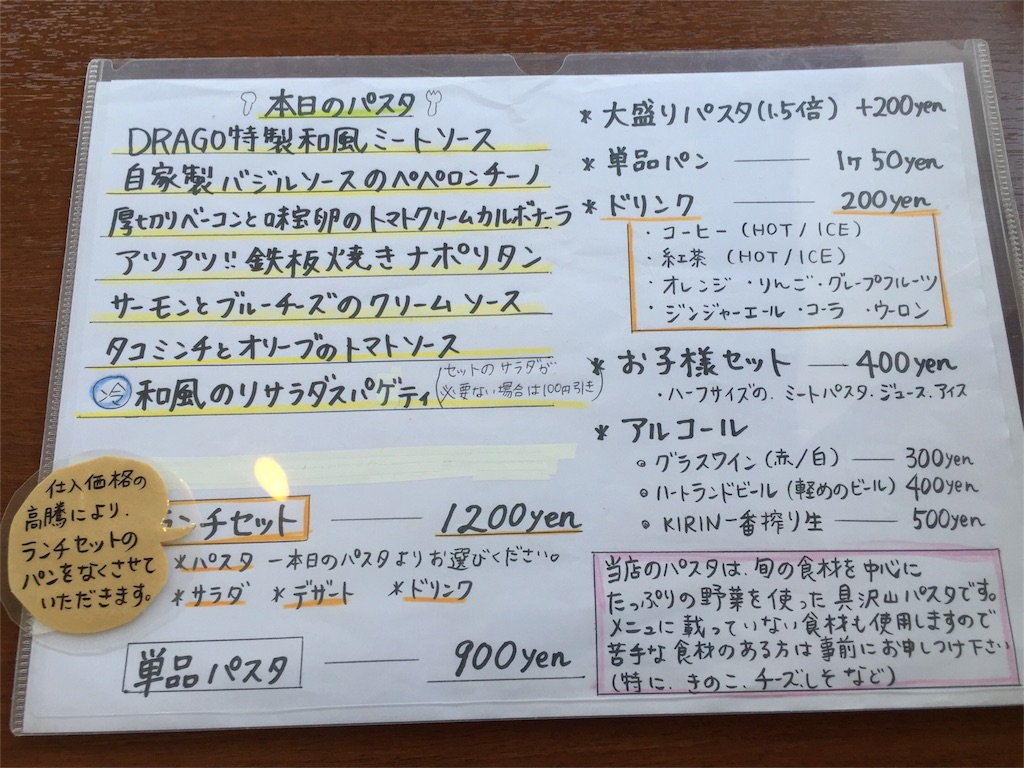 本日のパスタ
DRAGO特製和風ミートソース
自家製バジルソースのペペロンチーノ
厚切りベーコンと味宝卵のトマトクリームカルボナーラ
アツアツ!!鉄板焼きナポリタン
サーモンとブルーチーズのクリームソース
タコミンチとオリーブのトマトソース
冷 和風のりサラダスパゲティ
(セットのサラダが
必要ない場合は100円引き)
仕入価格の
高騰により、
ランチセットの
パンをなくさせて
いただきます。
ランチセット ―― 1200yen
*パスタ ―本日のパスタよりお選びください。
*サラダ *デザート *ドリンク
単品パスタ ―― 900yen
* 大盛りパスタ(1.5倍) +200yen
* 単品パン ―― 1ケ 50yen
* ドリンク ―― 200yen
・コーヒー (HOT/ICE)
・紅茶 (HOT/ICE)
・オレンジ ・りんご・グレープフルーツ
・ジンジャーエール ・コーラ ・ウーロン
* お子様セット ― 400yen
・ハーフサイズの、ミートパスタ・ジュース・アイス
* アルコール
・グラスワイン(赤/白) ― 300yen
・ハートランドビール(軽めのビール) 400yen
・KIRIN一番搾り生 ― 500yen
当店のパスタは、旬の食材を中心に
たっぷりの野菜を使った具沢山パスタです。
メニューに載っていない食材も使用しますので
苦手な食材のある方は事前にお申しつけ下さい
(特に、きのこ、チーズ、しそなど)